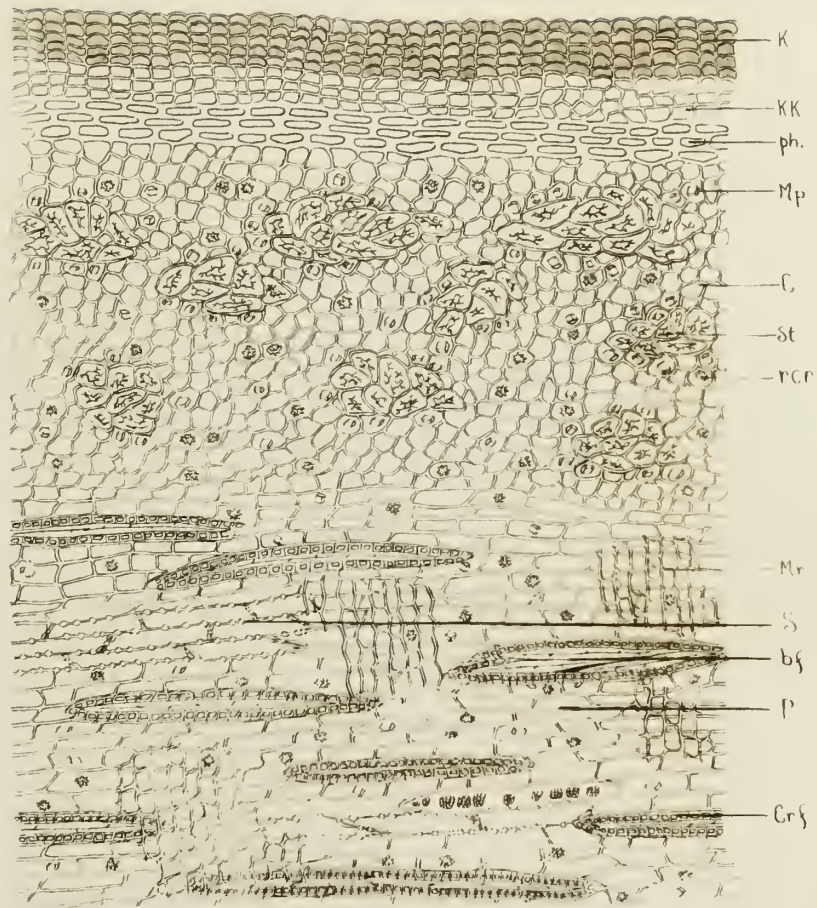 K
KK
ph.
Mp
St
rcr
Mr
S
bf
P
Crf